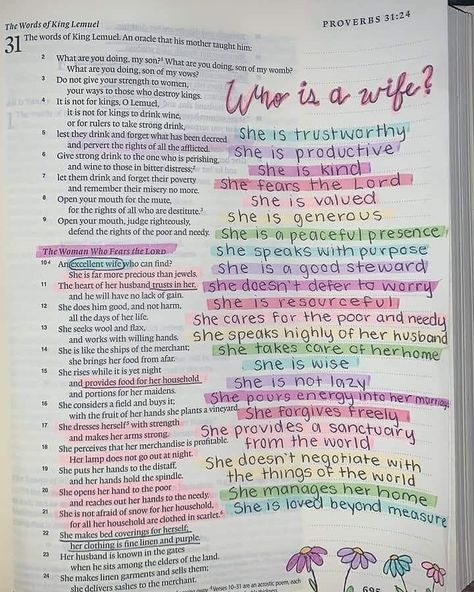 The Words of King Lemuel
PROVERBS 31:24
31 The words of King Lemuel. An oracle that his mother taught him:
2 What are you doing, my son? What are you doing, son of my womb?
What are you doing, son of my vows?
3 Do not give your strength to women,
your ways to those who destroy kings.
4 It is not for kings, O Lemuel,
it is not for kings to drink wine,
or for rulers to take strong drink,
5 lest they drink and forget what has been decreed
and pervert the rights of all the afflicted.
6 Give strong drink to the one who is perishing,
and wine to those in bitter distress;
7 let them drink and forget their poverty
and remember their misery no more.
8 Open your mouth for the mute,
for the rights of all who are destitute.
9 Open your mouth, judge righteously,
defend the rights of the poor and needy.
The Woman Who Fears the LORD
10 An excellent wife who can find?
She is far more precious than jewels.
11 The heart of her husband trusts in her,
and he will have no lack of gain.
12 She does him good, and not harm,
all the days of her life.
13 She seeks wool and flax,
and works with willing hands.
14 She is like the ships of the merchant;
she brings her food from afar.
15 She rises while it is yet night
and provides food for her household
and portions for her maidens.
16 She considers a field and buys it;
with the fruit of her hands she plants a vineyard.
17 She dresses herself with strength
and makes her arms strong.
18 She perceives that her merchandise is profitable.
Her lamp does not go out at night.
19 She puts her hands to the distaff,
and her hands hold the spindle.
20 She opens her hand to the poor
and reaches out her hands to the needy.
21 She is not afraid of snow for her household,
for all her household are clothed in scarlet.
22 She makes bed coverings for herself;
her clothing is fine linen and purple.
23 Her husband is known in the gates
when he sits among the elders of the land.
24 She makes linen garments and sells them;
she delivers sashes to the merchant.
Who is a wife?
She is trustworthy
She is productive
She is kind
She fears the Lord
She is valued
She is generous
She is a peaceful presence
She speaks with purpose
She is a good steward
She doesn't defer to worry
She is resourceful
She cares for the poor and needy
She speaks highly of her husband
She takes care of her home
She is wise
She is not lazy
She pours energy into her marriage
She forgives freely
She provides a sanctuary
from the world
She doesn't negotiate with
the things of the world
She manages her home
She is loved beyond measure
Verses 10–31 are an acrostic poem, each
695